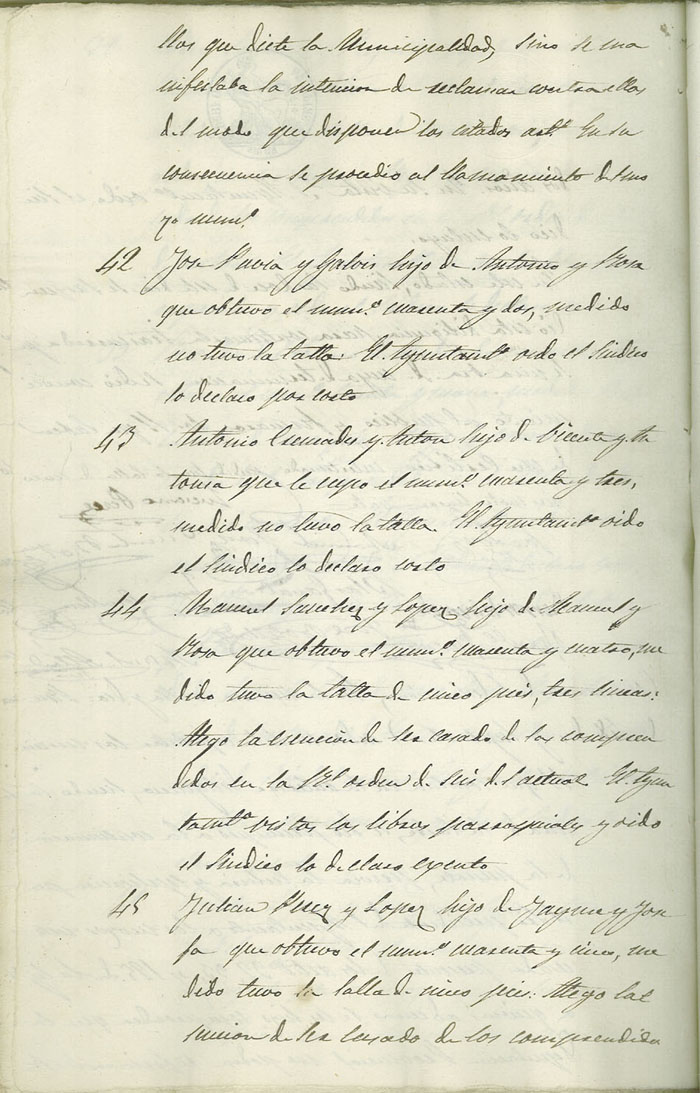 llos que dicte la Municipalidad, sino se ma
nifestaba la intencion de reclamar contra ellos
del modo que disponen los citados artº. En su
consecuencia se procedio al llamamiento del mo
zo numº.
42 Jose Pavia y Galvis hijo de Antonio y Rosa
que obtuvo el numº cuarenta y dos, medido
no tuvo la talla: El Ayuntamtº oido el Sindico
lo declaro por corto
43 Antonio y Anton hijo de Vicente y An
tonia que le cupo el numº cuarenta y tres,
medido no tuvo la talla. El Ayuntamtº oido
el Sindico lo declaro corto
44 Manuel Sanchez y Lopez hijo de Manuel y
Rosa que obtuvo el numº cuarenta y cuatro, me
dido tuvo la talla de cinco pies, tres lineas:
Alego la esencion de ser casado de los compren
didos en la Rl orden de seis del actual El Ayun
tamtº vistos los libros parroquiales y oido
el Sindico lo declaro exento
45 Julian Perez y Lopez hijo de Jayme y Jose
fa que obtuvo el numº cuarenta y cinco, me
dido tuvo la talla de cinco pies: Alego la e
sencion de ser casado de los comprendidos